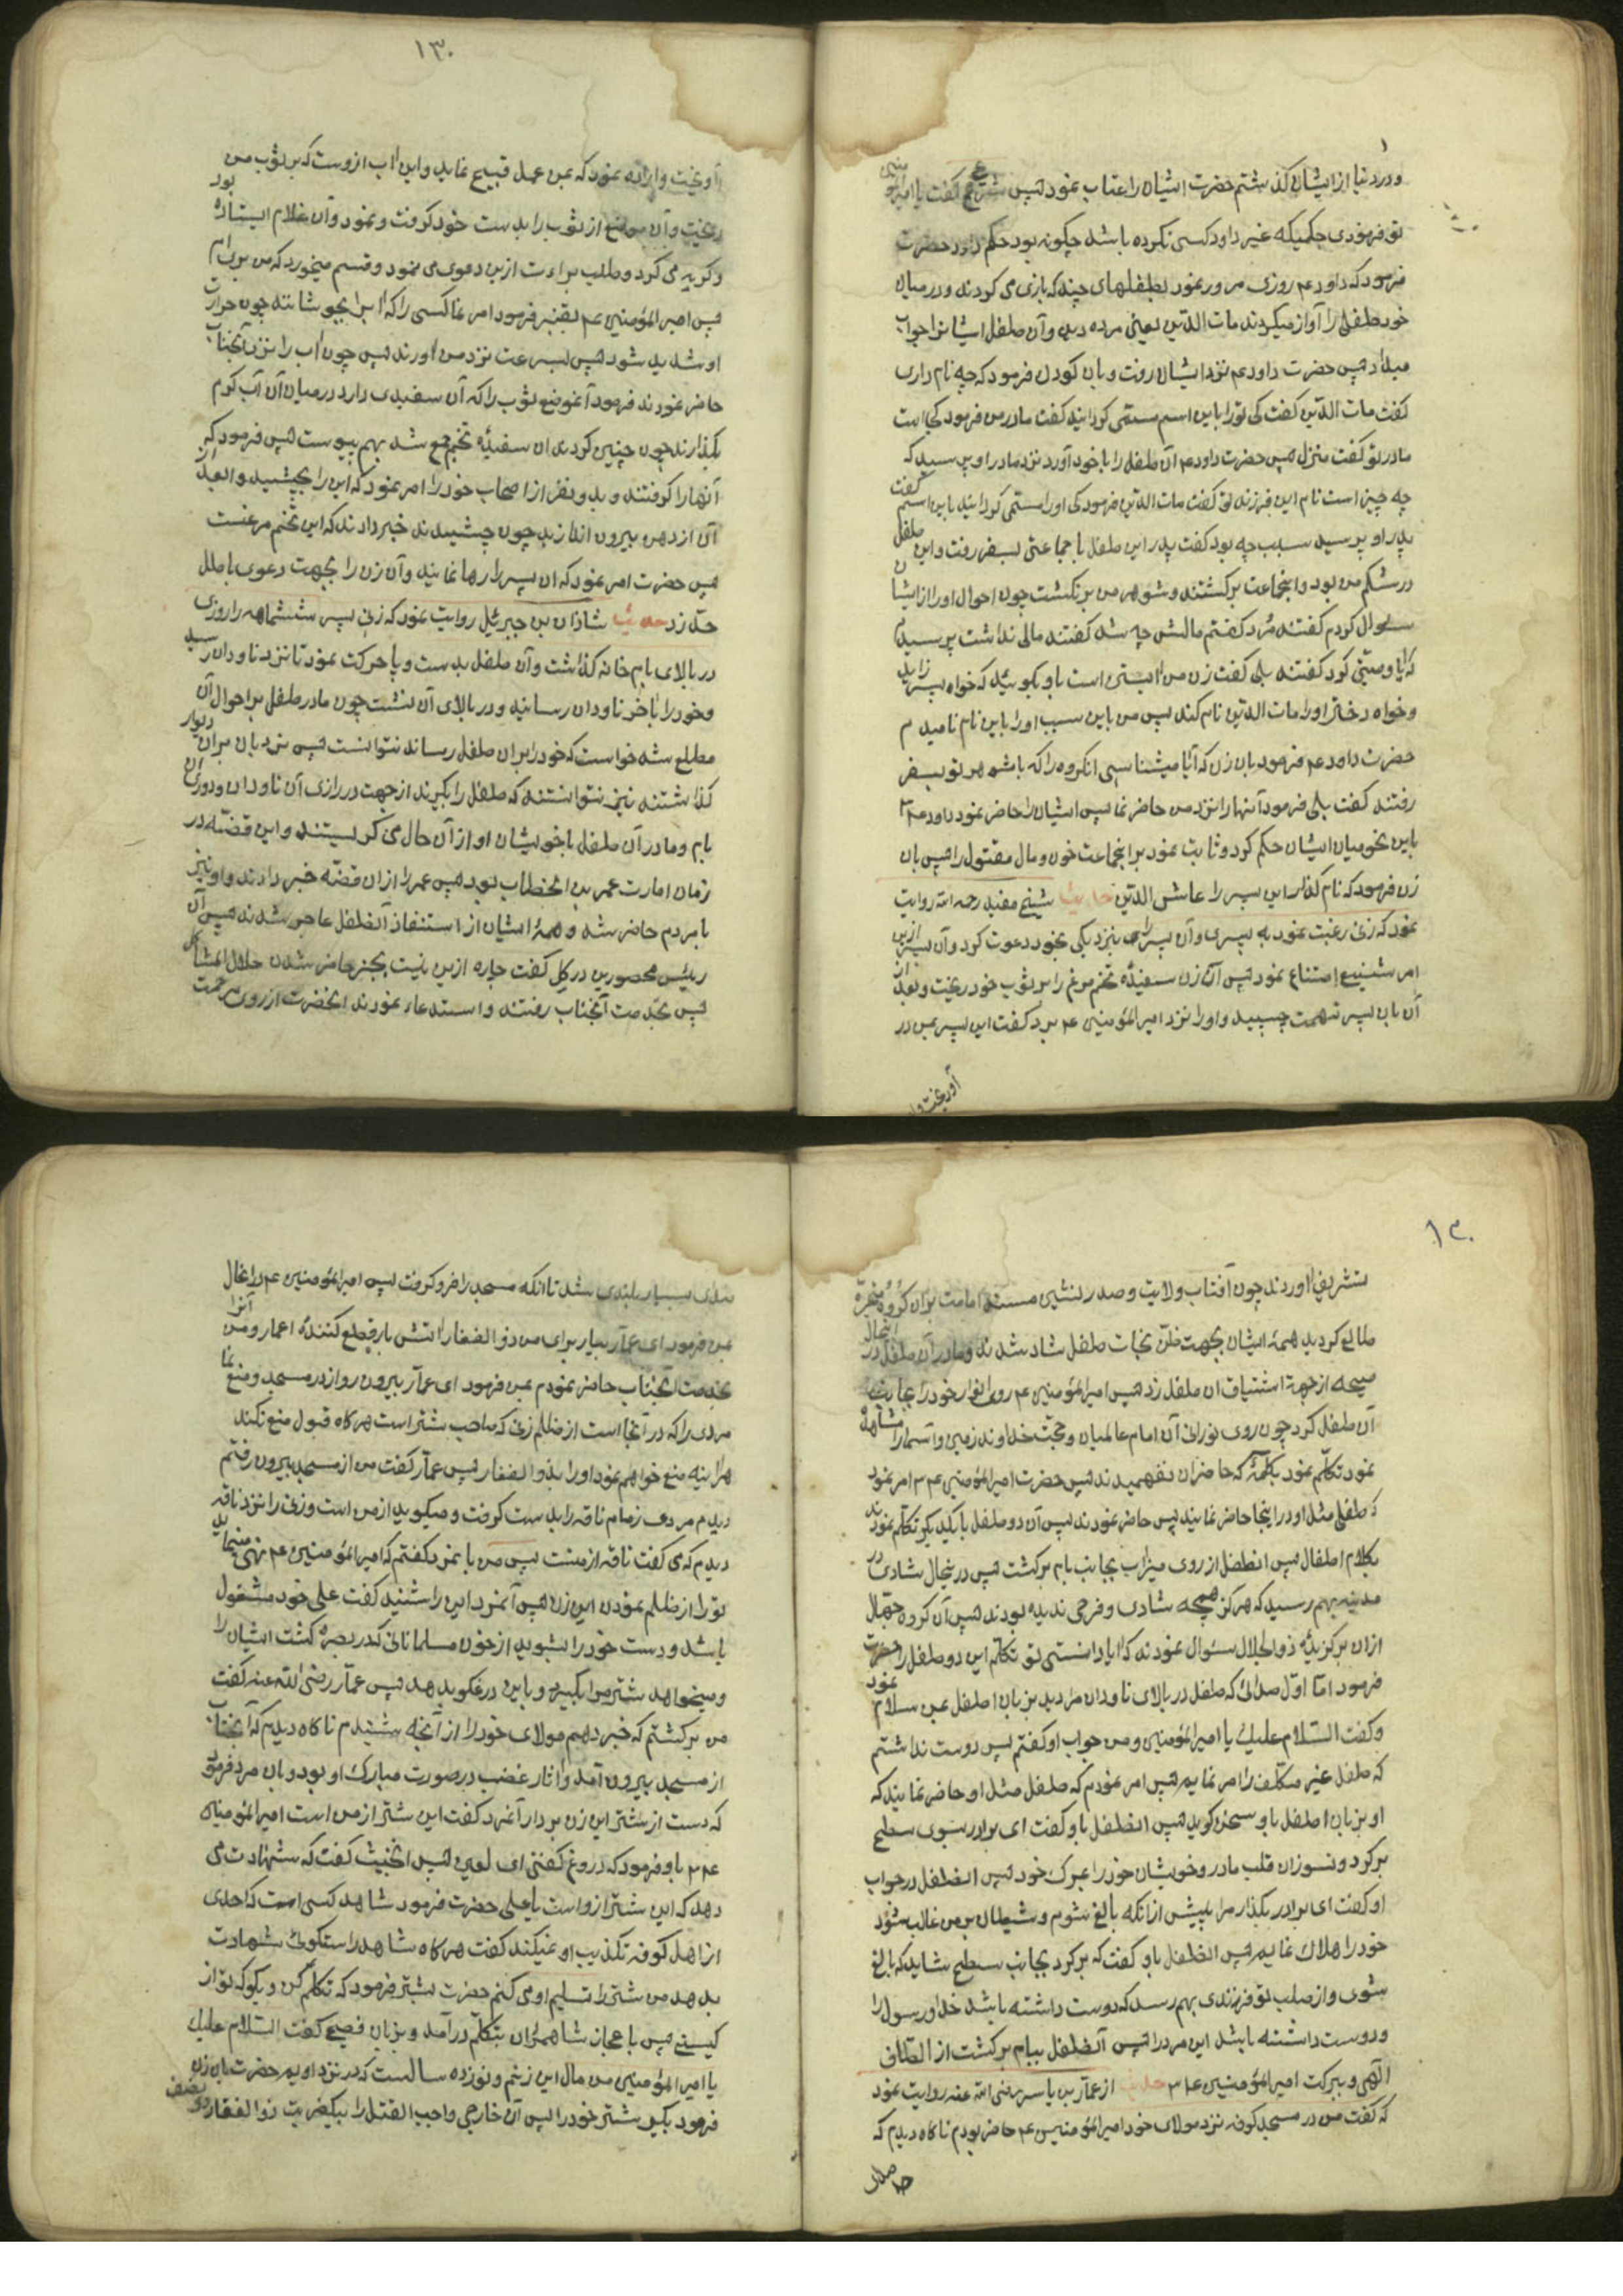 و در دنیا از ایشان گذشتم حضرت ایشان را عتاب نمود پس شریح گفت یا امیر
تو فرمودی حکمیکه غیر داود کسی نکرده باشد چگونه بود حکم داود حضرت
فرمود که داود عم روزی مرور نمود بطفلهای چند که بازی می کردند و در میان
خود طفلی را آواز میکردند مات الدین یعنی مرده دین و آن طفل ایشانرا جواب
میداد پس حضرت داود عم نزد ایشان رفت و بان کودک فرمود که چه نام داری
گفت مات الدین گفت کی تورا باین اسم مسمّی گردانید گفت مادرمن فرمود کجا است
مادر تو گفت منزل پس حضرت داود عم آن طفل را با خود آورد نزد مادر او پرسید که
چه چیز است نام این فرزند تو گفت مات الدین فرمود کی اورا مسمّی گردانید باین اسم گفت
پدر او پرسید سبب چه بود گفت پدر این طفل با جماعتی بسفر رفت و این طفل
در شکم من بود و انجماعت برگشتند و شوهر من برنگشت چون احوال اورا از ایشان
سئوال کردم گفتند مُرد گفتم مالش چه شد گفتند مالی نداشت پرسیدم
که ایا وصیّتی کرد گفتند بلی گفت زن من ابستن است باو بگوئید که خواه پسر زاید
و خواه دختر اورا مات الدین نام کند پس من باین سبب اورا باین نام نامیدم
حضرت داود عم فرمود بان زن که آیا میشناسی انگروه را که با شوهر تو بسفر
رفتند گفت بلی فرمود آنها را نزد من حاضر نما پس ایشان را حاضر نمود داود عم
باین نحو میان ایشان حکم کرد و ثابت نمود بر انجماعت خون و مال مقتول را پس بان
زن فرمود که نام گذار این پسر را عاش الدین حدیث شیخ مفید رحمه الله روایت
نمود که زنی رغبت نمود به پسری و آن پسر را بنزدیکی بخود دعوت کرد و آن پسر ازین
امر شنیع امتناع نمود پس آن زن سفیدهٔ تخم مرغ را بر ثوب خود ریخت و بعد از
آن بان پسر تهمت چسپید و اورا نزد امیرالمؤمنین عم برد گفت این پسر بمن در
آویخت و
۱۳۰
آویخت و اراده نمود که بمن عمل قبیح نماید و این اب ازوست که بر ثوب من بود
ریخت و آن موضع از ثوب را بدست خود گرفت و نمود و آن غلام ایستاده
و گریه می کرد و طلب براءت ازین دعوی می نمود و قسم میخورد که من بری ام
پس امیرالمؤمنین عم بقنبر فرمود امر نما کسی را که اب را بجوشانند چون حرارت
او شدید شود پس بسرعت نزد من اورند پس چون اب را نزد آنجناب
حاضر نمودند فرمود آنموضع ثوب را که آن سفیدی دارد درمیان آن آب گرم
بگذارند چون چنین کردند ان سفیدهٔ تخم جمع شد بهم پیوست پس فرمود که
آنها را گرفتند و بدو نفر از اصحاب خود را امر نمود که این را بچشید و بعد از
آن از دهن بیرون اندازید چون چشیدند خبر دادند که این تخم مرغست
پس حضرت امر نمود که ان پسر را رها نمایند و آن زن را بجهت دعوی باطل
حدّ زد حدیث شاذان بن جبرئیل روایت نمود که زنی پسر ششماهه را روزی
در بالای بام خانه گذاشت و آن طفل بدست و پا حرکت نمود تا نزد ناودان رسید
و خود را باخر ناودان رسانید و در بالای آن نشست چون مادر طفل بر احوال آن
مطلع شد خواست که خود را بران طفل رساند نتوانست پس نردبان بران دیوار
گذاشتند نیز نتوانستند که طفل را بگیرند از جهت درازی آن ناودان و دوری آن
بام و مادر آن طفل با خویشان او از آن حال می گریستند و این قضیّه در
زمان امارت عمر بن الخطاب بود پس عمر را ازان قضیّه خبر دادند و او نیز
با مردم حاضر شد و همهٔ ایشان از استنقاذ آنطفل عاجز شدند پس آن
رئیس محصورین در کل گفت چاره ازین نیست بجز حاضر شدن حلال مشاکل
پس بخدمت آنجناب رفتند و استدعاء نمودند انحضرت از روی مرحمت
۱۳۰
تشریف اوردند چون آفتاب ولایت و صدر نشین مسند امامت بران گروه
طالع گردید همهٔ ایشان بجهت ظنّ نجات طفل شاد شدند و مادر آن طفل در انحال
صیحه از جهة اشتیاق ان طفل زد پس امیرالمؤمنین عم روی انوار خود را بجانب
آن طفل کرد چون روی نورانی آن امام عالمیان و حجّت خداوند زمین و آسمان را مشاهده
نمود تکلّم نمود بکلمهٔ که حاضران نفهمیدند پس حضرت امیرالمؤمنین عم امر نمود
که طفلی مثل او در اینجا حاضر نمایند پس حاضر نمودند پس آن دو طفل با یکدیگر تکلّم نمودند
بکلام اطفال پس انطفل از روی میزاب بجانب بام برگشت پس در انحال شادی در
مدینه بهم رسید که هرگز هیچه شادی و فرحی ندیده بودند پس آن گروه جهّال
ازان برگزیدهٔ ذوالجلال سئوال نمودند که ایا دانستی تو تکلّم این دو طفل را حضرت
فرمود امّا اوّل صدائی که طفل در بالای ناودان مرا دید بزبان اطفل بمن سلام نمود
و گفت السّلام علیک یا امیرالمؤمنین و من جواب او گفتم پس دوست نداشتم
که طفل غیر مکلّف را امر نمایم پس امر نمودم که طفل مثل او حاضر نمایند که
او بزبان اطفل باو سخن گوید پس انطفل باو گفت ای برادر بسوی سطح
برگرد و نسوزان قلب مادر و خویشان خود را بمرگ خود پس انطفل در جواب
او گفت ای برادر بگذار مرا پیش ازانکه بالغ شوم و شیطان بر من غالب شود
خود را هلاک نمایم پس انطفل باو گفت که برگرد بجانب سطح شاید که بالغ
شوی و از صلب تو فرزندی بهم رسد که دوست داشته باشد خدا و رسول را
و دوست داشته باشد این مرد را پس آنطفل ببام برگشت از الطاف
الهی و ببرکت امیرالمؤمنین عم حدیث از عمّار بن یاسر رضی الله عنه روایت نمود
که گفت من در مسجد کوفه نزد مولای خود امیرالمؤمنین عم حاضر بودم ناگاه دیدم که
صدای بسیار بلندی شد تا انکه مسجد را فرو گرفت پس امیرالمؤمنین عم
بمن فرمود ای عمّار بیار برای من ذوالفقار اتش بار قطع کنندهٔ اعمار و من آنرا
بخدمت آنجناب حاضر نمودم بمن فرمود ای عمّار بیرون رو از در مسجد و منع نما
مردی را که در آنجا است از ظلم زنی که صاحب شتر است هرگاه قبول منع نکند
هراینه منع خواهم نمود او را بذوالفقار پس عمّار گفت من از مسجد بیرون رفتم
دیدم مردی زمام ناقه را بدست گرفت و میگوید از من است و زنی را نزد ناقه
دیدم که می گفت ناقه از منست پس من بانمرد گفتم که امیرالمؤمنین عم نهی مینماید
تورا از ظلم نمودن این زن پس آنمرد این را شنید گفت علی خود مشغول
باشد و دست خود را بشوید از خون مسلمانانی که در بصره کشت ایشان را
و میخواهد شتر مرا بگیرد و باین دروغگو بدهد پس عمّار رضی الله عنه گفت
من برگشتم که خبر دهم مولای خود را از آنچه شنیدم ناگاه دیدم که آنجناب
از مسجد بیرون آمد و اثار غضب در صورت مبارک او بود و بان مرد فرمود
که دست از شتر این زن بردار آنمرد گفت این شتر از من است امیرالمؤمنین
عم باو فرمود که دروغ گفتی ای لعین پس انخبیث گفت که شهادت می
دهد که این شتر ازو است یا علی حضرت فرمود شاهد کسی است که احدی
از اهل کوفه تکذیب او نمیکند گفت هرگاه شاهد راستگوئی شهادت
بدهد من شتر را تسلیم او می کنم حضرت بشتر فرمود که تکلّم کن و بگو که تو از
کیستی پس باعجاز شاهمردان بتکلّم درآمد و بزبان فصیح گفت السّلام علیک
یا امیرالمؤمنین من مال این زنم و نوزده سالست که در نزد اویم حضرت بان زن
فرمود بگیر شتر خود را پس آن خارجی واجب القتل را بیکضربت ذوالفقار دو نصف